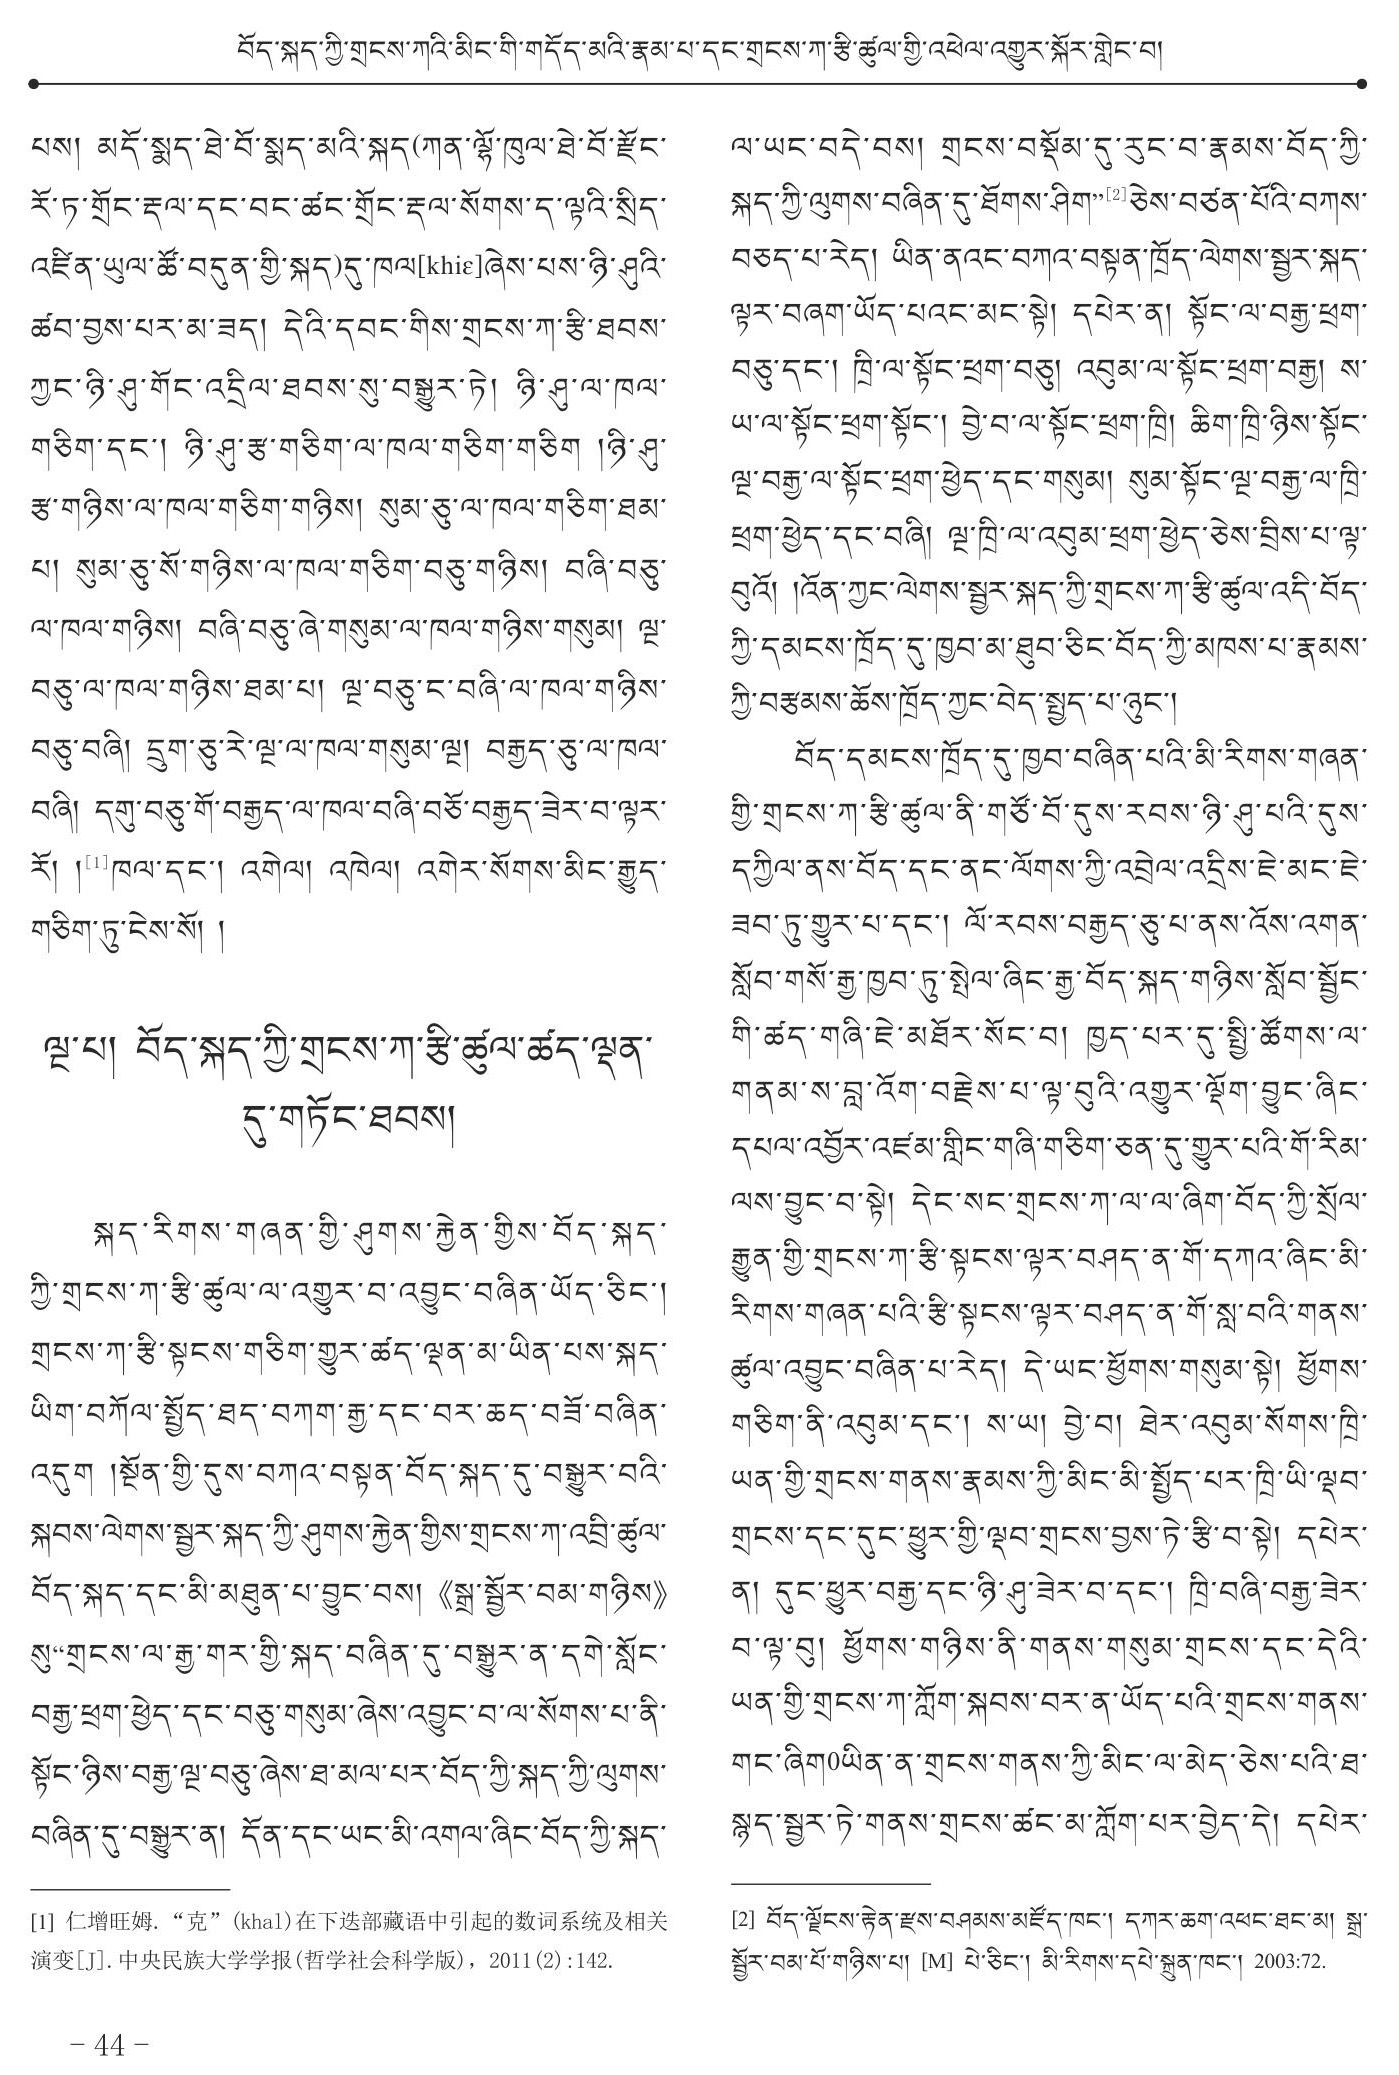 བོད་སྐད་ཀྱི་གྲངས་ཀའི་མིང་གི་གདོད་མའི་རྣམ་པ་དང་གྲངས་ཀ་རྩི་ཚུལ་གྱི་འཕེལ་འགྱུར་སྐོར་གླེང་བ།
པས། མདོ་སྨད་ཐེ་བོ་སྨད་མའི་སྐད(ཀན་ལྷོ་ཁུལ་ཐེ་བོ་རྫོང་
རོ་ཏ་གྲོང་རྡལ་དང་བང་ཚང་གྲོང་རྡལ་སོགས་ད་ལྟའི་སྲིད་
འཛིན་ཡུལ་ཚོ་བདུན་གྱི་སྐད)དུ་ཁལ[khiɛ]ཞེས་པས་ཉི་ཤུའི་
ཚབ་བྱས་པར་མ་ཟད། དེའི་དབང་གིས་གྲངས་ཀ་རྩི་ཐབས་
ཀྱང་ཉི་ཤུ་གོང་འདྲིལ་ཐབས་སུ་བསྒྱུར་ཏེ། ཉི་ཤུ་ལ་ཁལ་
གཅིག་དང་། ཉི་ཤུ་རྩ་གཅིག་ལ་ཁལ་གཅིག་གཅིག །ཉི་ཤུ་
རྩ་གཉིས་ལ་ཁལ་གཅིག་གཉིས། སུམ་ཅུ་ལ་ཁལ་གཅིག་ཐམ་
པ། སུམ་ཅུ་སོ་གཉིས་ལ་ཁལ་གཅིག་བཅུ་གཉིས། བཞི་བཅུ་
ལ་ཁལ་གཉིས། བཞི་བཅུ་ཞེ་གསུམ་ལ་ཁལ་གཉིས་གསུམ། ལྔ་
བཅུ་ལ་ཁལ་གཉིས་ཐམ་པ། ལྔ་བཅུ་ང་བཞི་ལ་ཁལ་གཉིས་
བཅུ་བཞི། དྲུག་ཅུ་རེ་ལྔ་ལ་ཁལ་གསུམ་ལྔ། བརྒྱད་ཅུ་ལ་ཁལ་
བཞི། དགུ་བཅུ་གོ་བརྒྱད་ལ་ཁལ་བཞི་བཅོ་བརྒྱད་ཟེར་བ་ལྟར་
རོ། །[1]ཁལ་དང་། འགེལ། འཁེལ། འགེར་སོགས་མིང་རྒྱུད་
གཅིག་ཏུ་ངེས་སོ། །
ལྔ་པ། བོད་སྐད་ཀྱི་གྲངས་ཀ་རྩི་ཚུལ་ཚད་ལྡན་
དུ་གཏོང་ཐབས།
སྐད་རིགས་གཞན་གྱི་ཤུགས་རྐྱེན་གྱིས་བོད་སྐད་
ཀྱི་གྲངས་ཀ་རྩི་ཚུལ་ལ་འགྱུར་བ་འབྱུང་བཞིན་ཡོད་ཅིང་།
གྲངས་ཀ་རྩི་སྟངས་གཅིག་གྱུར་ཚད་ལྡན་མ་ཡིན་པས་སྐད་
ཡིག་བཀོལ་སྤྱོད་ཐད་བཀག་རྒྱ་དང་བར་ཆད་བཟོ་བཞིན་
འདུག །སྔོན་གྱི་དུས་བཀའ་བསྟན་བོད་སྐད་དུ་བསྒྱུར་བའི་
སྐབས་ལེགས་སྦྱར་སྐད་ཀྱི་ཤུགས་རྐྱེན་གྱིས་གྲངས་ཀ་འབྲི་ཚུལ་
བོད་སྐད་དང་མི་མཐུན་པ་བྱུང་བས། 《སྒྲ་སྦྱོར་བམ་གཉིས》
སུ“གྲངས་ལ་རྒྱ་གར་གྱི་སྐད་བཞིན་དུ་བསྒྱུར་ན་དགེ་སློང་
བརྒྱ་ཕྲག་ཕྱེད་དང་བཅུ་གསུམ་ཞེས་འབྱུང་བ་ལ་སོགས་པ་ནི་
སྟོང་ཉིས་བརྒྱ་ལྔ་བཅུ་ཞེས་ཐ་མལ་པར་བོད་ཀྱི་སྐད་ཀྱི་ལུགས་
བཞིན་དུ་བསྒྱུར་ན། དོན་དང་ཡང་མི་འགལ་ཞིང་བོད་ཀྱི་སྐད་
[1] 仁增旺姆. “克”(khal)在下迭部藏语中引起的数词系统及相关
演变[J]. 中央民族大学学报(哲学社会科学版), 2011(2):142.
ལ་ཡང་བདེ་བས། གྲངས་བསྡོམ་དུ་རུང་བ་རྣམས་བོད་ཀྱི་
སྐད་ཀྱི་ལུགས་བཞིན་དུ་ཐོགས་ཤིག”[2]ཅེས་བཙན་པོའི་བཀས་
བཅད་པ་རེད། ཡིན་ནའང་བཀའ་བསྟན་ཁྲོད་ལེགས་སྦྱར་སྐད་
ལྟར་བཞག་ཡོད་པའང་མང་སྟེ། དཔེར་ན། སྟོང་ལ་བརྒྱ་ཕྲག་
བཅུ་དང་། ཁྲི་ལ་སྟོང་ཕྲག་བཅུ། འབུམ་ལ་སྟོང་ཕྲག་བརྒྱ། ས་
ཡ་ལ་སྟོང་ཕྲག་སྟོང་། བྱེ་བ་ལ་སྟོང་ཕྲག་ཁྲི། ཆིག་ཁྲི་ཉིས་སྟོང་
ལྔ་བརྒྱ་ལ་སྟོང་ཕྲག་ཕྱེད་དང་གསུམ། སུམ་སྟོང་ལྔ་བརྒྱ་ལ་ཁྲི་
ཕྲག་ཕྱེད་དང་བཞི། ལྔ་ཁྲི་ལ་འབུམ་ཕྲག་ཕྱེད་ཅེས་བྲིས་པ་ལྟ་
བུའོ། །འོན་ཀྱང་ལེགས་སྦྱར་སྐད་ཀྱི་གྲངས་ཀ་རྩི་ཚུལ་འདི་བོད་
ཀྱི་དམངས་ཁྲོད་དུ་ཁྱབ་མ་ཐུབ་ཅིང་བོད་ཀྱི་མཁས་པ་རྣམས་
ཀྱི་བརྩམས་ཆོས་ཁྲོད་ཀྱང་བེད་སྤྱད་པ་ཉུང་།
བོད་དམངས་ཁྲོད་དུ་ཁྱབ་བཞིན་པའི་མི་རིགས་གཞན་
གྱི་གྲངས་ཀ་རྩི་ཚུལ་ནི་གཙོ་བོ་དུས་རབས་ཉི་ཤུ་པའི་དུས་
དཀྱིལ་ནས་བོད་དང་ནང་ལོགས་ཀྱི་འབྲེལ་འདྲིས་ཇེ་མང་ཇེ་
ཟབ་ཏུ་གྱུར་པ་དང་། ལོ་རབས་བརྒྱད་ཅུ་པ་ནས་འོས་འགན་
སློབ་གསོ་རྒྱ་ཁྱབ་ཏུ་སྤེལ་ཞིང་རྒྱ་བོད་སྐད་གཉིས་སློབ་སྦྱོང་
གི་ཚད་གཞི་ཇེ་མཐོར་སོང་བ། ཁྱད་པར་དུ་སྤྱི་ཚོགས་ལ་
གནམ་ས་བླ་འོག་བརྗེས་པ་ལྟ་བུའི་འགྱུར་ལྡོག་བྱུང་ཞིང་
དཔལ་འབྱོར་འཛམ་གླིང་གཞི་གཅིག་ཅན་དུ་གྱུར་པའི་གོ་རིམ་
ལས་བྱུང་བ་སྟེ། དེང་སང་གྲངས་ཀ་ལ་ལ་ཞིག་བོད་ཀྱི་སྲོལ་
རྒྱུན་གྱི་གྲངས་ཀ་རྩི་སྟངས་ལྟར་བཤད་ན་གོ་དཀའ་ཞིང་མི་
རིགས་གཞན་པའི་རྩི་སྟངས་ལྟར་བཤད་ན་གོ་སླ་བའི་གནས་
ཚུལ་འབྱུང་བཞིན་པ་རེད། དེ་ཡང་ཕྱོགས་གསུམ་སྟེ། ཕྱོགས་
གཅིག་ནི་འབུམ་དང་། ས་ཡ། བྱེ་བ། ཐེར་འབུམ་སོགས་ཁྲི་
ཡན་གྱི་གྲངས་གནས་རྣམས་ཀྱི་མིང་མི་སྤྱོད་པར་ཁྲི་ཡི་ལྡབ་
གྲངས་དང་དུང་ཕྱུར་གྱི་ལྡབ་གྲངས་བྱས་ཏེ་རྩི་བ་སྟེ། དཔེར་
ན། དུང་ཕྱུར་བརྒྱ་དང་ཉི་ཤུ་ཟེར་བ་དང་། ཁྲི་བཞི་བརྒྱ་ཟེར་
བ་ལྟ་བུ། ཕྱོགས་གཉིས་ནི་གནས་གསུམ་གྲངས་དང་དེའི་
ཡན་གྱི་གྲངས་ཀ་ཀློག་སྐབས་བར་ན་ཡོད་པའི་གྲངས་གནས་
གང་ཞིག0ཡིན་ན་གྲངས་གནས་ཀྱི་མིང་ལ་མེད་ཅེས་པའི་ཐ་
སྙད་སྦྱར་ཏེ་གནས་གྲངས་ཚང་མ་ཀློག་པར་བྱེད་དེ། དཔེར་
[2] བོད་ལྗོངས་རྟེན་རྫས་བཤམས་མཛོད་ཁང་། དཀར་ཆག་འཕང་ཐང་མ། སྒྲ་
སྦྱོར་བམ་པོ་གཉིས་པ། [M] པེ་ཅིང་། མི་རིགས་དཔེ་སྐྲུན་ཁང་། 2003:72.
– 44 –